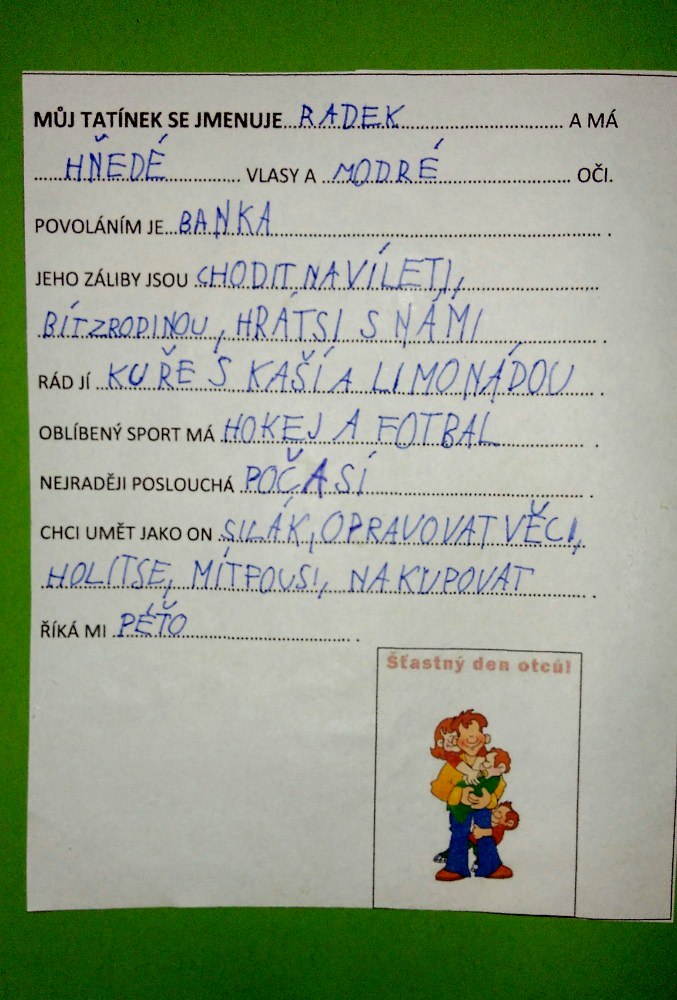 MŮJ TATÍNEK SE JMENUJE RADEK A MÁ
HŇEDÉ VLASY A MODRÉ OČI.
POVOLÁNÍM JE BANKA .
JEHO ZÁLIBY JSOU CHODIT NA VÍLETI,
BÍT Z RODINOU, HRÁT SI S NÁMI .
RÁD JÍ KUŘE S KAŠÍ A LIMONÁDOU .
OBLÍBENÝ SPORT MÁ HOKEJ A FOTBAL .
NEJRADĚJI POSLOUCHÁ POČASÍ .
CHCI UMĚT JAKO ON SILÁK, OPRAVOVAT VĚCI,
HOLIT SE, MÍT FOUSI, NAKUPOVAT .
ŘÍKÁ MI PÉŤO .
Šťastný den otců!